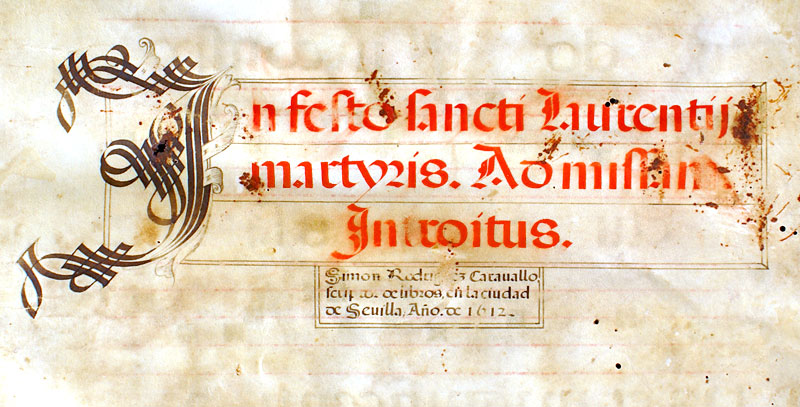 In festo sancti Laurentij
martyris. Ad missam
Introitus.
Simon Rodriguez Caravallo,
scriptor de libros, en la ciudad
de Sevilla, Año. de 1612.